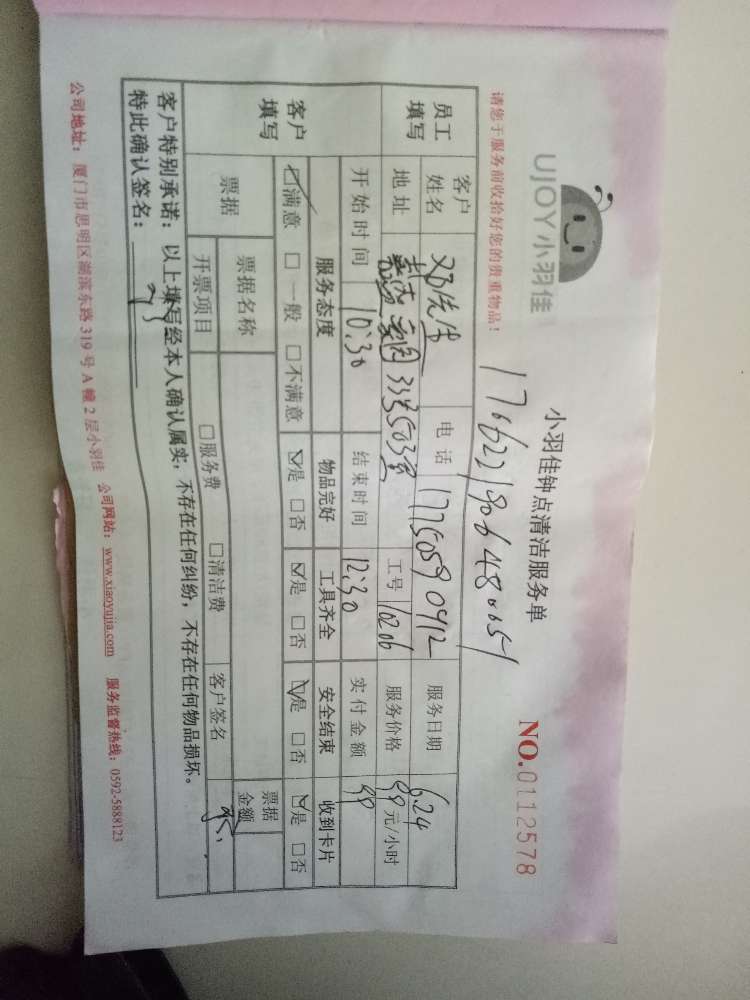 UJOY小羽佳
小羽佳钟点清洁服务单
请您于服务前收拾好您的贵重物品！
NO.0112578
员工填写
客户姓名 邓先生 电话 17750590412 服务日期 6.24
地址 33号503室 工号 10206 服务价格 99元/小时
开始时间 10:30 结束时间 12:30 实付金额 99
客户填写
服务态度 物品完好 工具齐全 安全结束 收到卡片
☑满意 □一般 □不满意 ☑是 □否 ☑是 □否 ☑是 □否 ☑是 □否
票据 票据名称 票据金额
开票项目 □服务费 □清洁费 客户签名
客户特别承诺：以上填写经本人确认属实，不存在任何纠纷，不存在任何物品损坏。
特此确认签名：
公司地址：厦门市思明区湖滨东路319号A幢2层小羽佳 公司网站：www.xiaoyujia.com 服务监督热线：0592-5888123